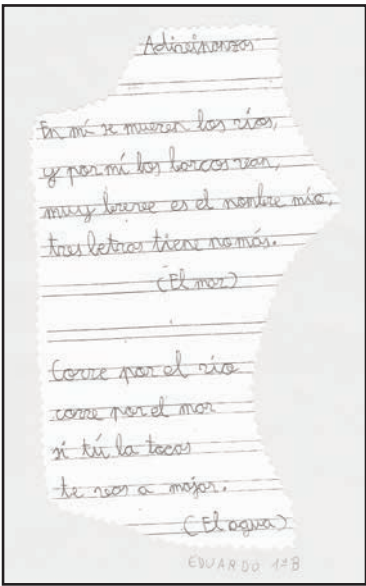 Adivinanzas
En mí se mueren los ríos,
y por mí los barcos van,
muy breve es el nombre mío,
tres letras tiene no más.
(El mar)
Corre por el río
corre por el mar
si tú la tocas
te vas a mojar.
(El agua)
EDUARDO 1ºB